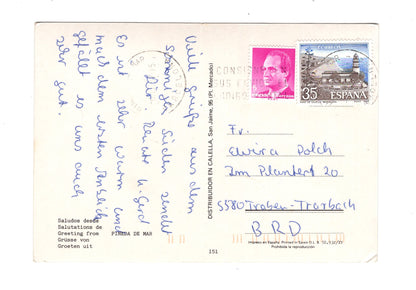 Viele Grüße aus dem
Spanischen Süden sendet
Dir Renate u. Gerd
Es ist sehr warm und
nach dem ersten Anblick
gefällt es uns auch
sehr gut.
Saludos desde
Salutations de
Greeting from PINEDA DE MAR
Grüsse von
Groeten uit
DISTRIBUIDOR EN CALELLA, San Jaime, 96 (Pl. Mercado)
151
CORREOS
35
ESPAÑA
Fr.
Elwira Polch
Im Plantert 20
5580 Traben-Trarbach
BRD
Impreso en España Printed in Spain
Prohibida la reproducción